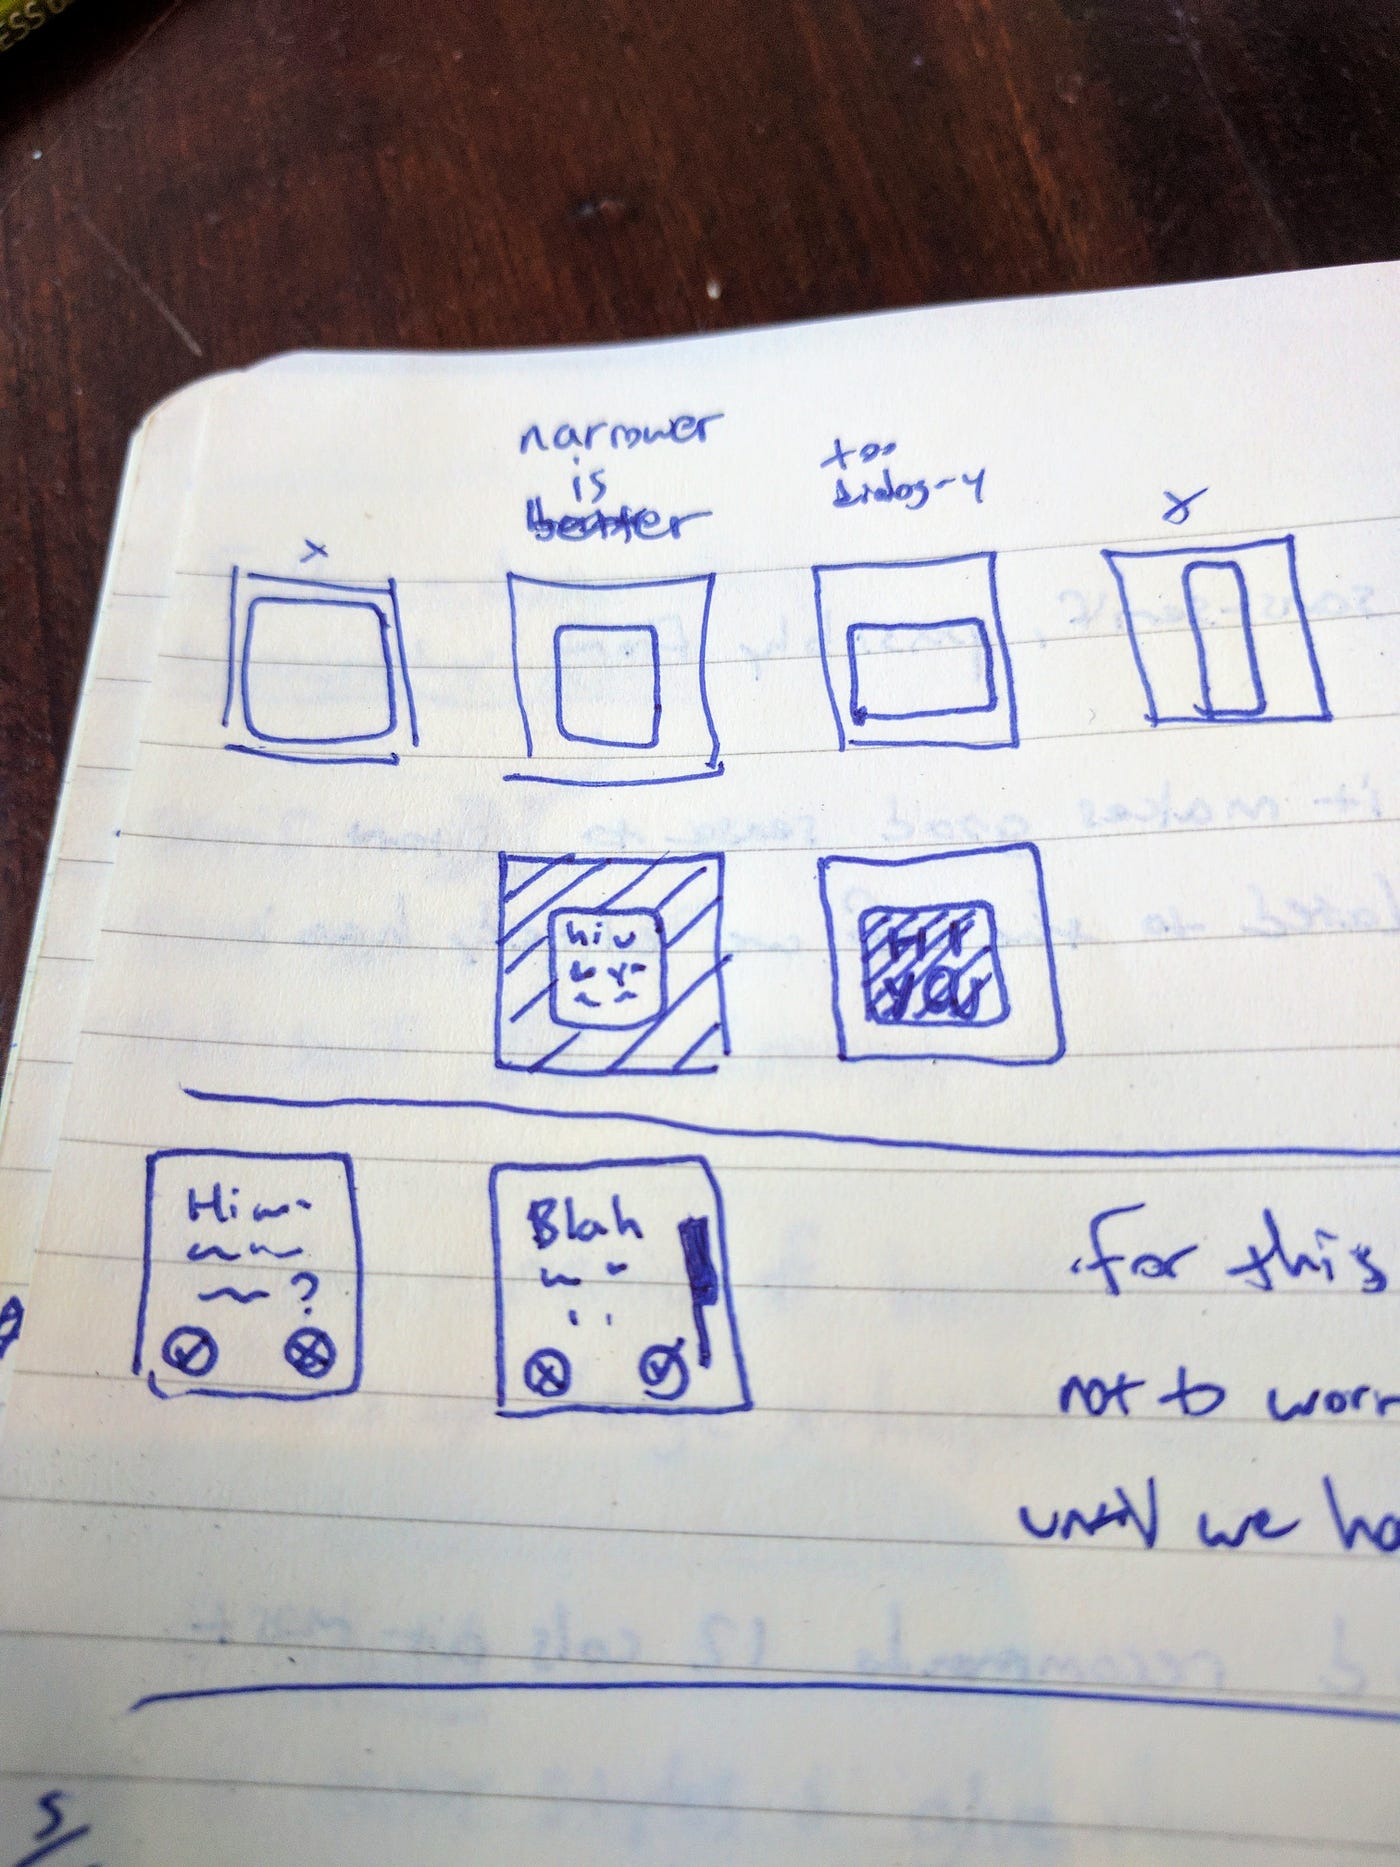 narrower
is
better
too
dialog-y
x
x
hi
HI
YOU
Hi
?
Blah
For this
not to worr
until we ha
5/